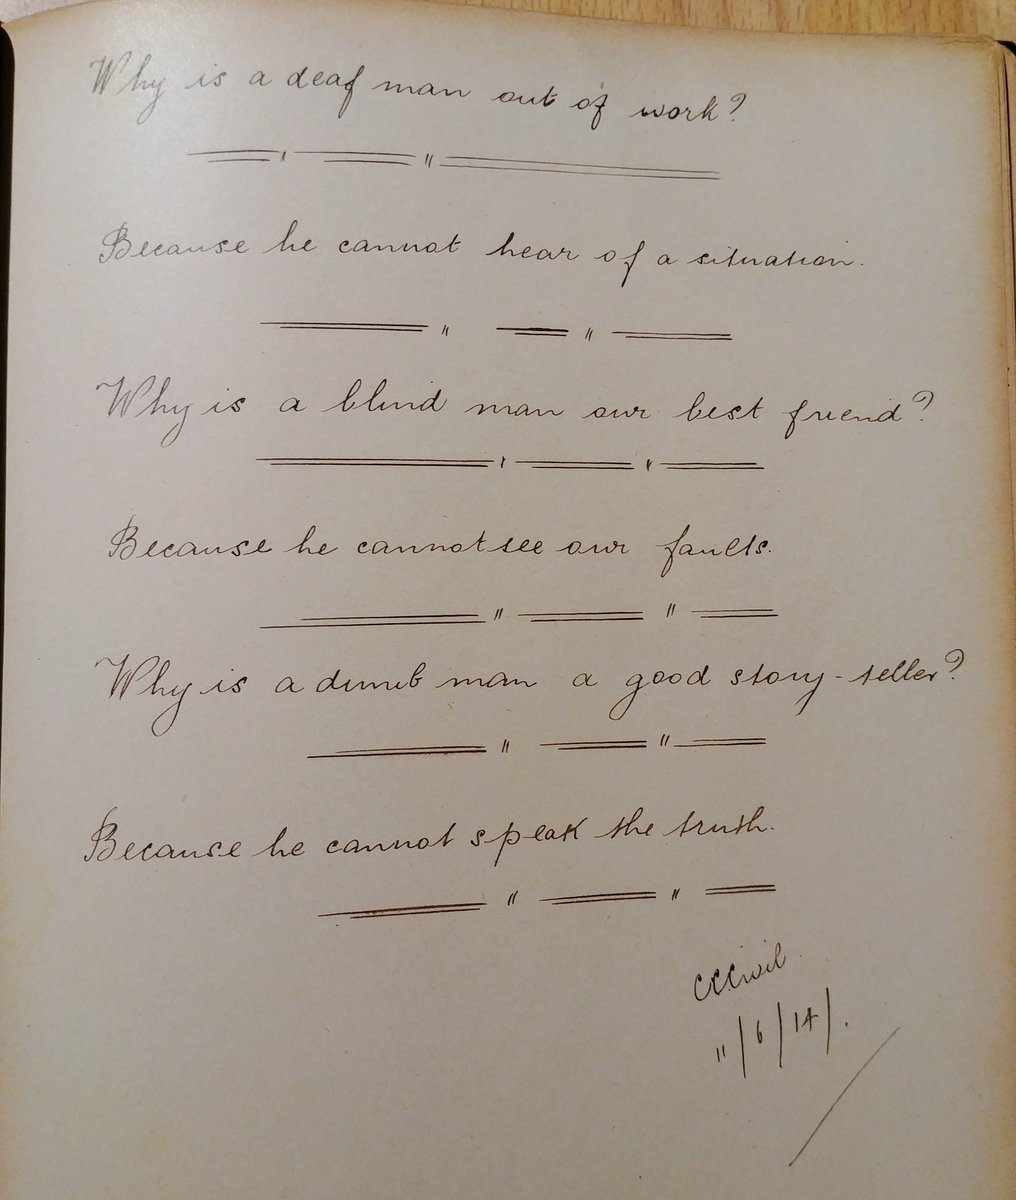 Why is a deaf man out of work?
Because he cannot hear of a situation.
Why is a blind man our best friend?
Because he cannot see our faults.
Why is a dumb man a good story-teller?
Because he cannot speak the truth.
11/6/14/.